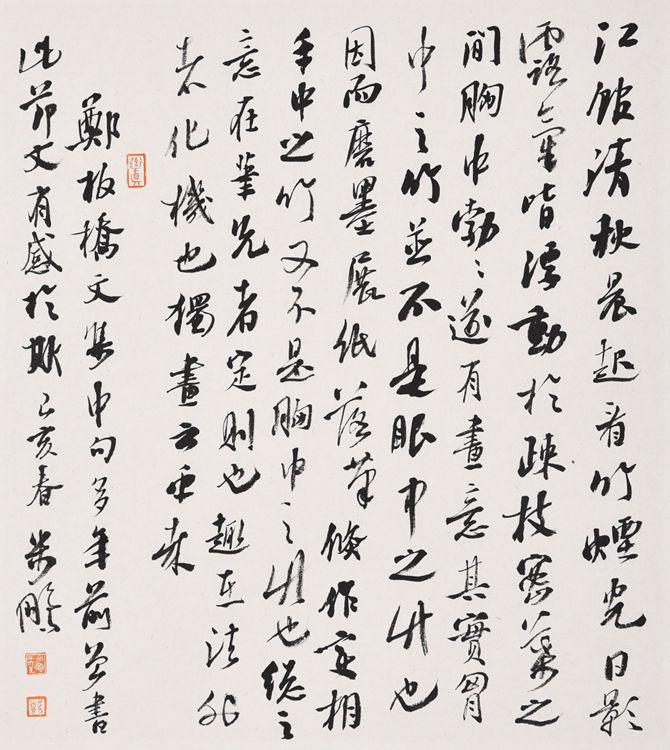 江館清秋晨起看竹煙光日影
露氣皆浮動於疎枝密葉之
間胸中勃〻遂有畫意其實胷
中之竹並不是眼中之竹也
因而磨墨展紙落筆倏作变相
手中之竹又不是胸中之竹也總之
意在筆先者定則也趣在法外
者化機也獨畫云乎哉
鄭板橋文集中句多年前曾書
此節文有感於斯己亥春